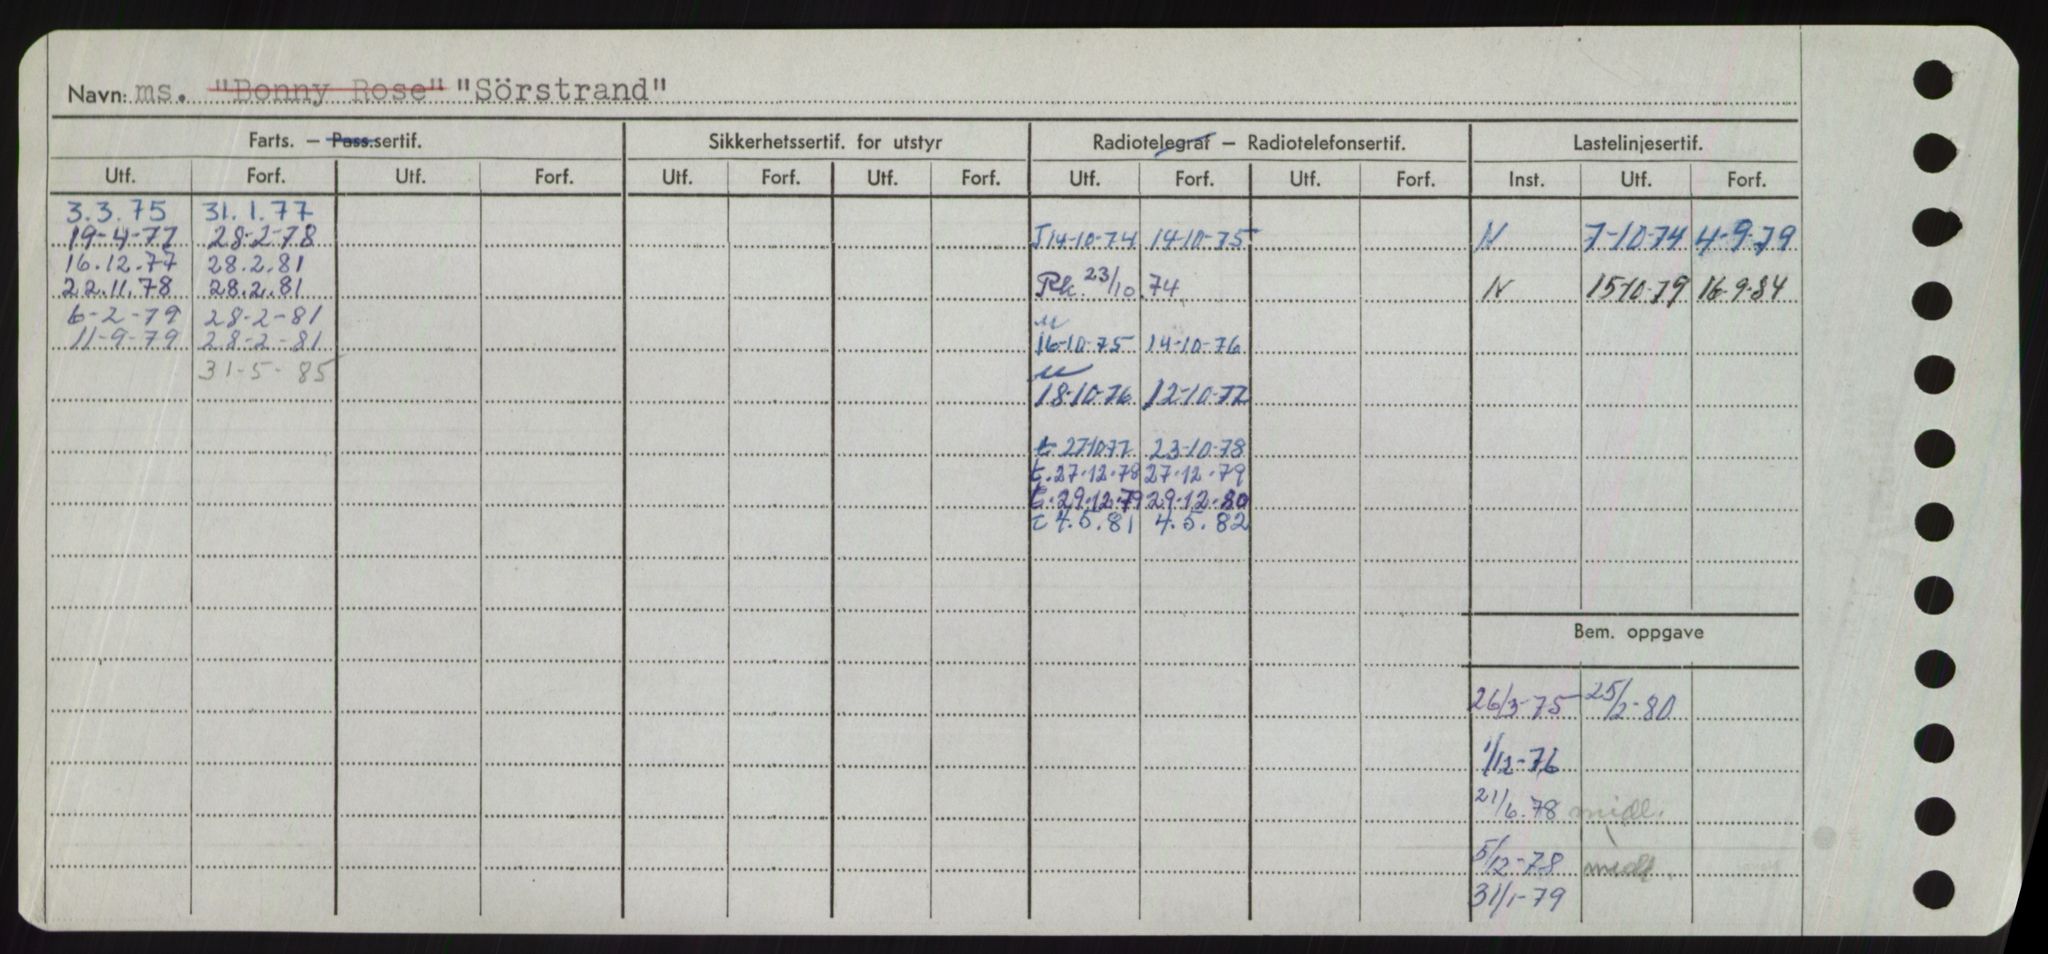 Navn: ms. "Bonny Rose" "Sörstrand"
Farts. — Pass.sertif. Sikkerhetssertif. for utstyr Radiotelegraf — Radiotelefonsertif. Lastelinjesertif.
Utf. Forf. Utf. Forf. Utf. Forf. Utf. Forf. Utf. Forf. Utf. Forf. Inst. Utf. Forf.
3.3.75 31.1.77
19-4-77 28-2-78 T 14-10-74 14-10-75 N 7-10-74 4-9-79
16.12.77 28.2.81
22.11.78 28.2.81 Rk. 23/10.74 N 15-10-79 16-9-84
6-2-79 28-2-81
11-9-79 28-2-81 16-10-75 14-10-76
31-5-85
18-10-76 12-10-77
t. 27-10-77 23-10-78
t. 27.12.78 27.12.79
t. 29.12.79 29.12.80
t 4.5.81 4.5.82
Bem. oppgave
26/3-75 25/2-80
1/12-76
21/6.78 midl.
5/12-78 midl.
31/1-79